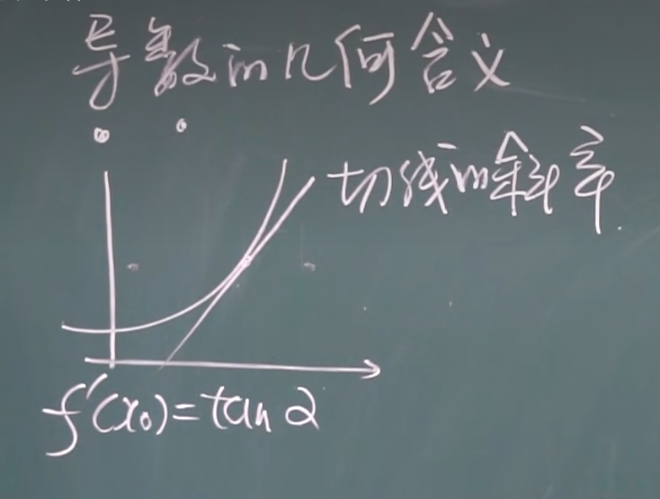 导数的几何含义
切线的斜率
f'(x₀)=tan α